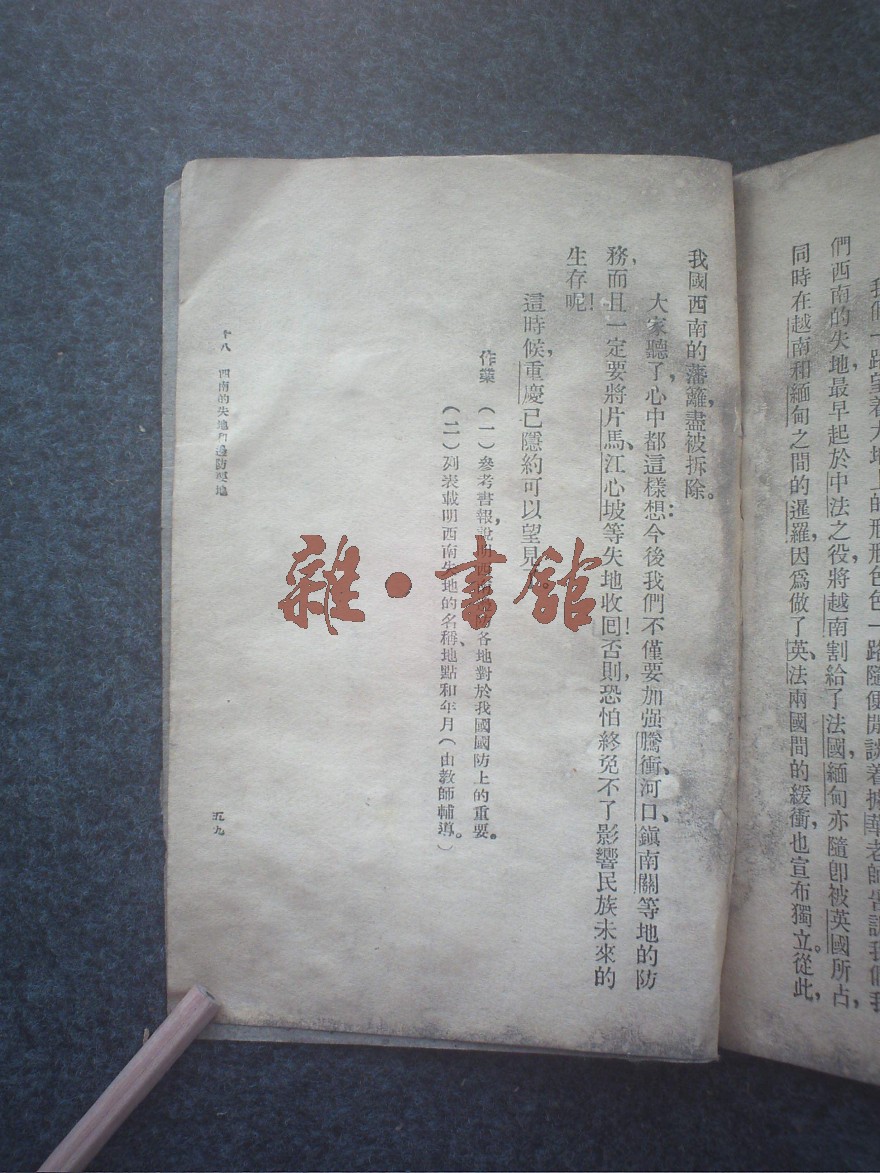 我們一路望着大地上的形形色色一路隨便閒談着據華老師告訴我們我
們西南的失地，最早起於中法之役，將越南割給了法國，緬甸亦隨卽被英國所占，
同時在越南和緬甸之間的暹羅，因爲做了英、法兩國間的緩衝，也宣布獨立。從此，
我國西南的藩籬，盡被拆除。
大家聽了，心中都這樣想：今後我們不僅要加强騰衝、河口、鎮南關等地的防
務，而且一定要將片馬、江心坡等失地收回！否則，恐怕終免不了影響民族未來的
生存呢！
這時候，重慶已隱約可以望見
作業　（一）參考書報，說明西南各地對於我國國防上的重要。
（二）列表載明西南失地的名稱、地點和年月（由教師輔導。）
十八　西南的失地和邊防要地
五九
雜·書館